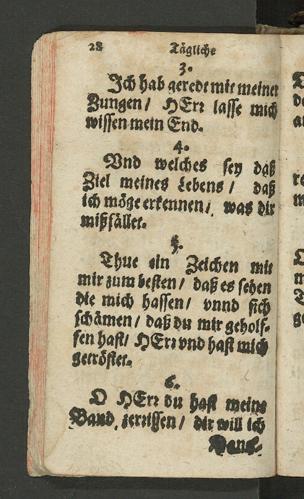 28 Tägliche
3.
Ich hab geredt mit meiner
Zungen / HErr lasse mich
wissen mein End.
4.
Vnd welches sey daß
Ziel meines Lebens / daß
ich möge erkennen / was dir
mißfället.
5.
Thue ein Zeichen mit
mir zum besten / daß es sehen
die mich hassen / vnnd sich
schämen / daß du mir geholf-
fen hast / HErr vnd hast mich
getröstet.
6.
O HErr du hast meine
Band zerrissen / dir will ich
Dank-